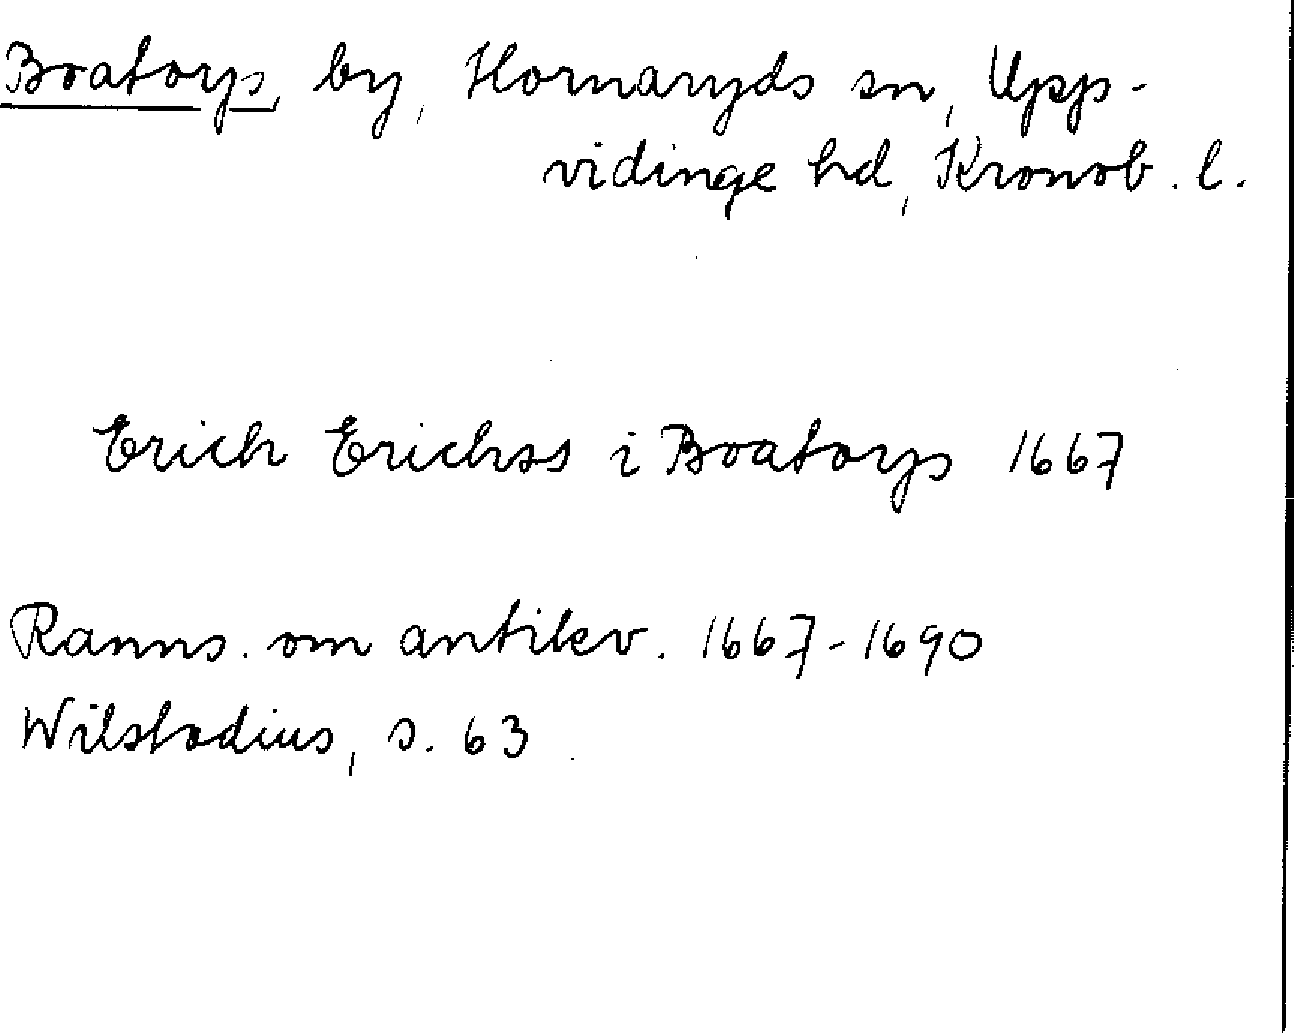 Boatorps, by, Hornaryds sn, Upp-
vidinge hd, Kronob. l.
Erich Erichss i Boatorps 1667
Ranns. om antikv. 1667-1690
Wilstadius, s. 63